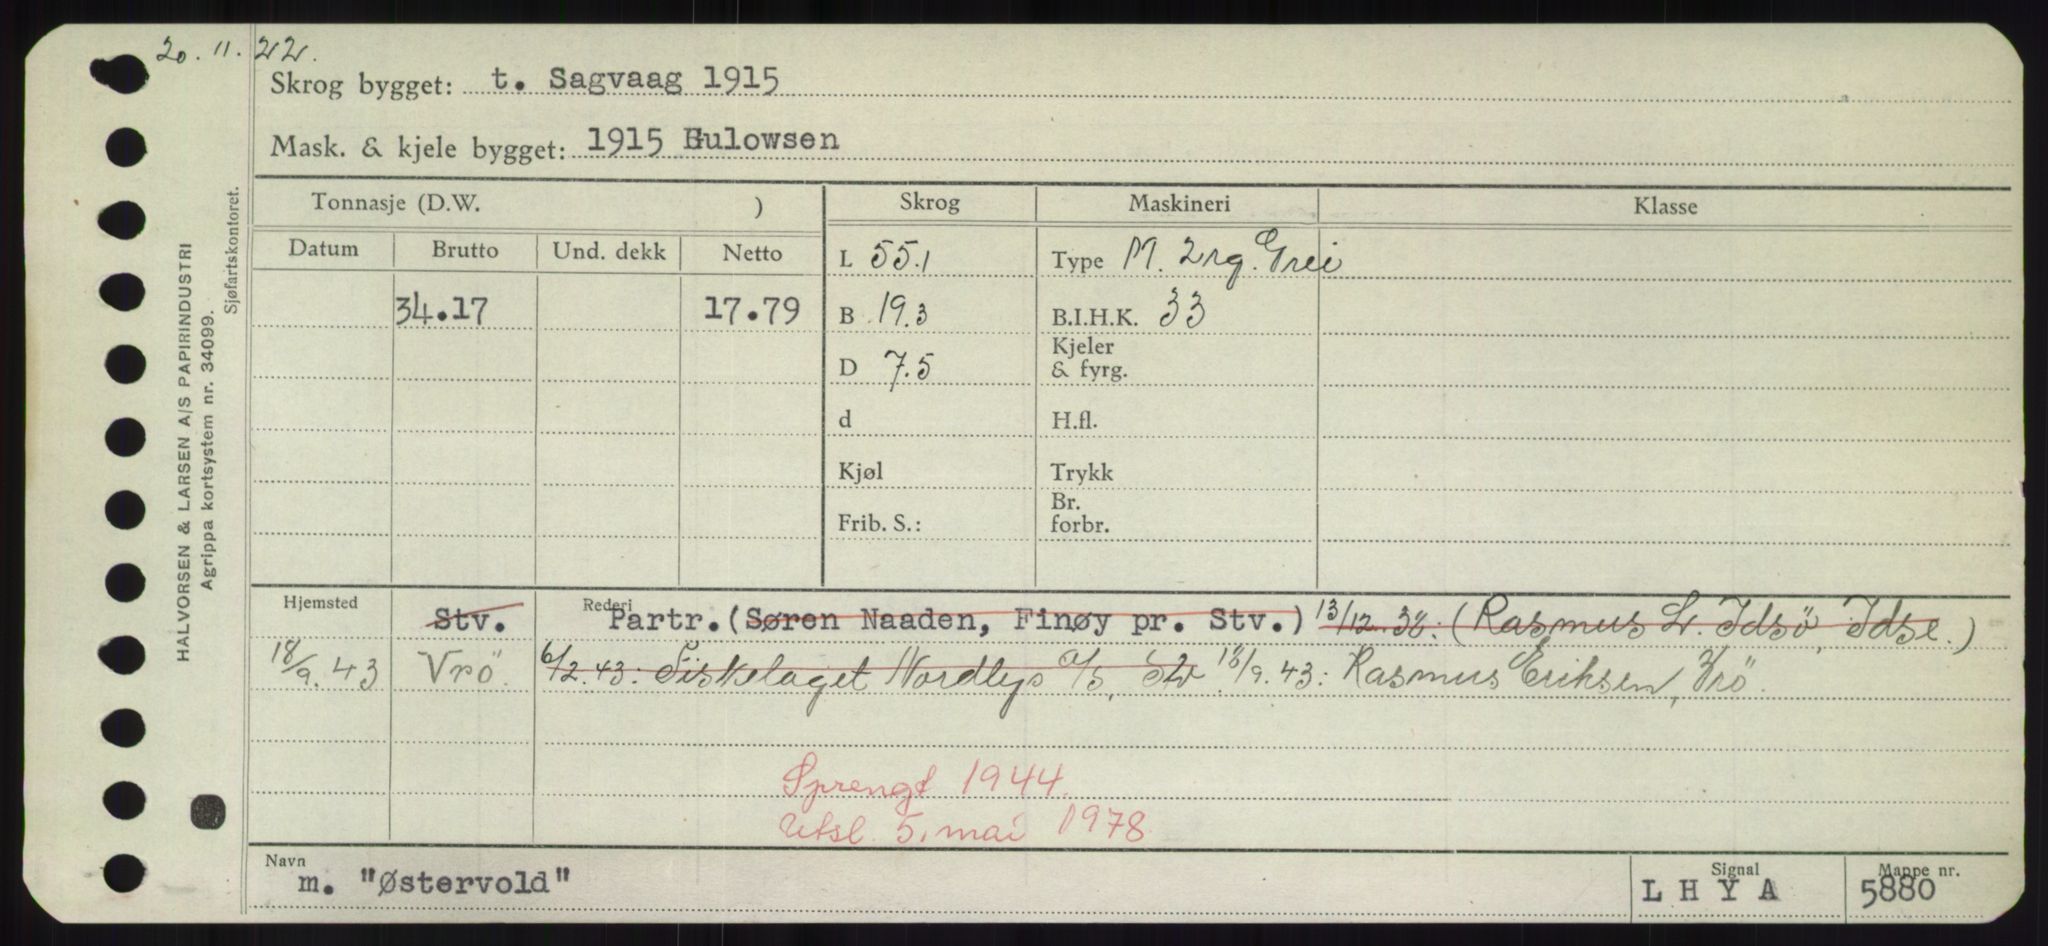 20.11.22.
Skrog bygget: t. Sagvaag 1915
Mask. & kjele bygget: 1915 Gulowsen
Tonnasje (D.W. ) Skrog Maskineri Klasse
Datum Brutto Und. dekk Netto L 55.1 Type M. 2 Grei
34.17 17.79 B 19.3 B.I.H.K. 33
D 7.5 Kjeler & fyrg.
d H.fl.
Kjøl Trykk
Frib. S.: Br. forbr.
Hjemsted Stv. Rederi Partr. (Søren Naaden, Finøy pr. Stv.) 13/12.38: (Rasmus L. Idsö, Idse.)
18/9.43 Vrö. 6/2.43: Fiskelaget Nordlys a/s, Stv 18/9.43: Rasmus Eriksen, Vrö.
Sprengt 1944.
Utsl. 5. mai 1978
Navn m. "Østervold" Signal L H Y A Mappe nr. 5880
HALVORSEN & LARSEN A/S PAPIRINDUSTRI
Agrippa kortsystem nr. 34099.
Sjøfartskontoret.